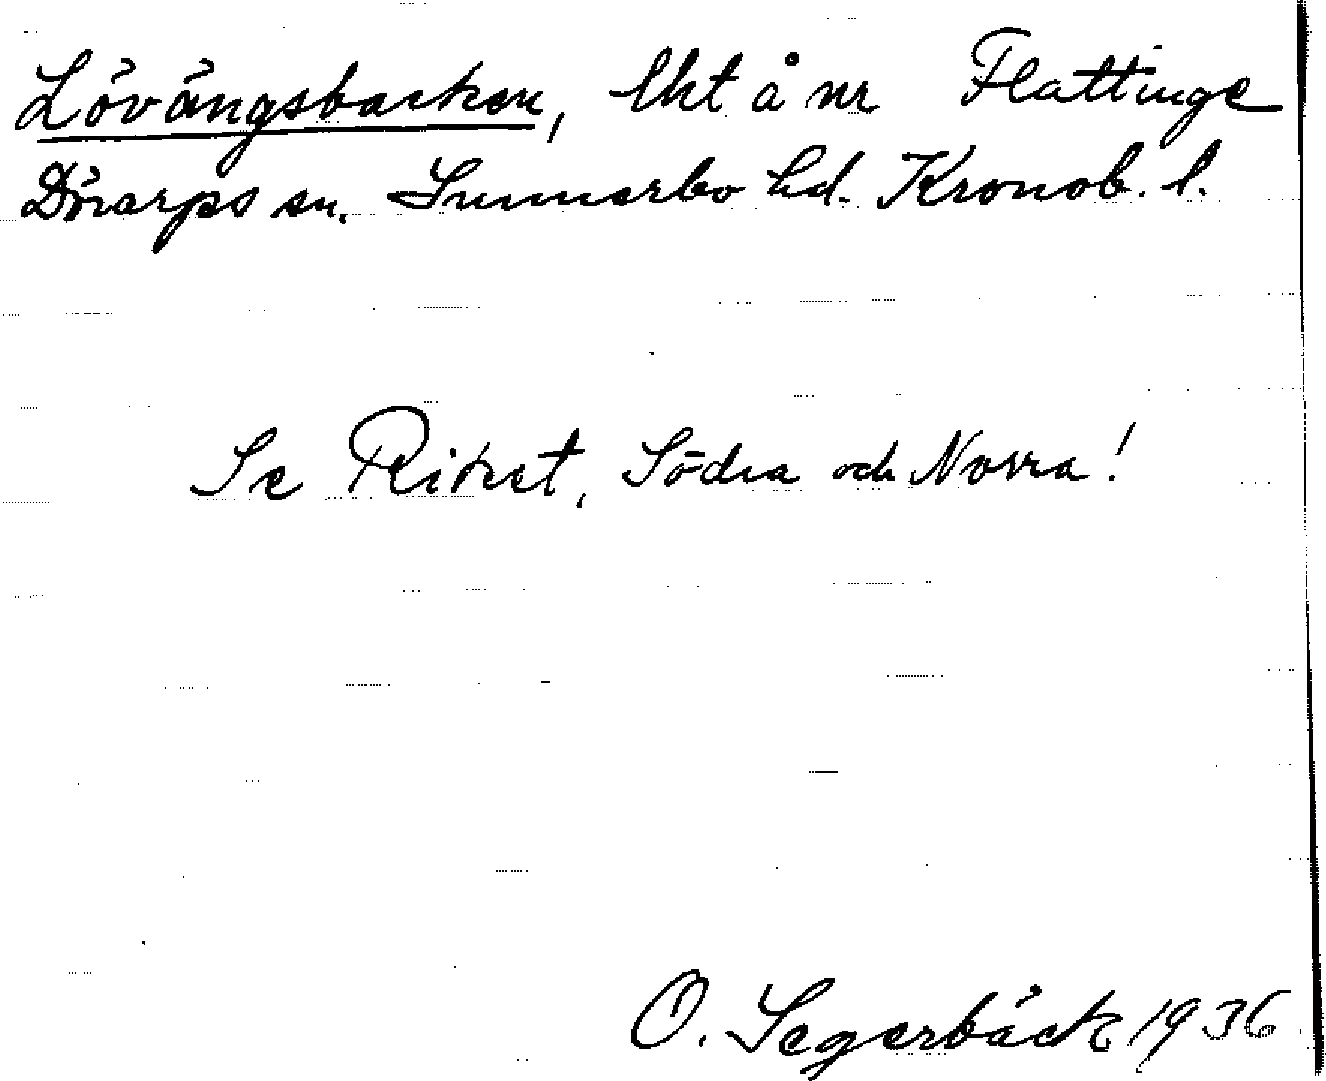 Lövängsbacken, lht å nr Flattinge
Dörarps sn. Sunnerbo hd. Kronob. l.
Se Riket, Södra och Norra!
O. Segerbäck 1936